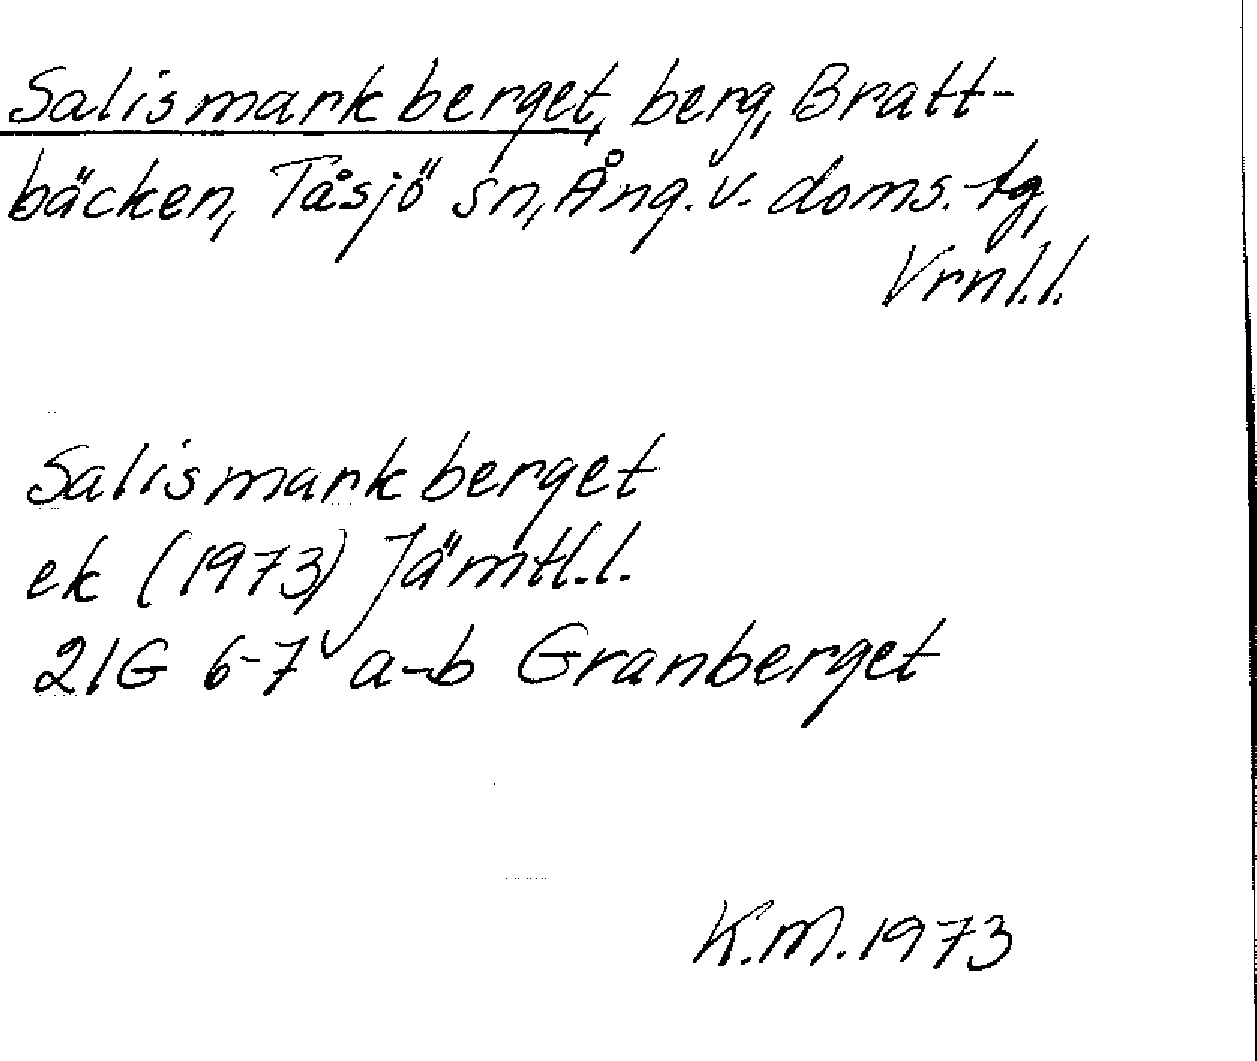 Salismarkberget, berg, Bratt-
bäcken, Tåsjö sn, Ång. v. doms. tg,
Vrnl.l.
Salismarkberget
ek (1973) Jämtl.l.
21G 6-7 a-b Granberget
K.M. 1973